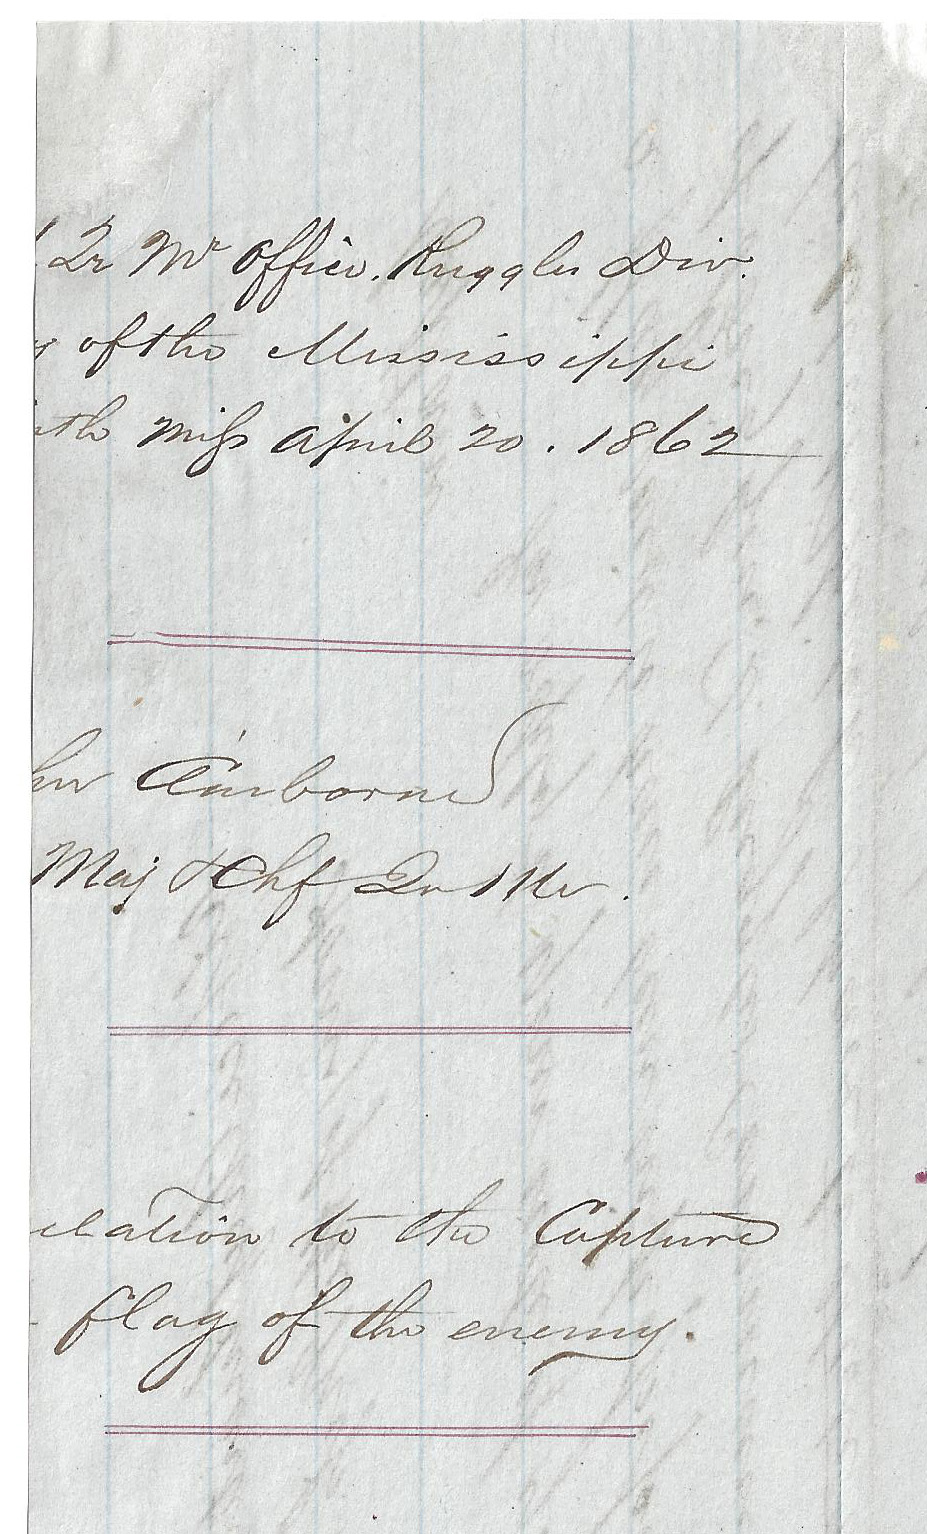 Qr Mr Office. Ruggles Div.
y of the Mississippi
nth Miss April 20. 1862
Claiborne
Maj & Chf Qr Mr.
elation to the Capture
flag of the enemy.